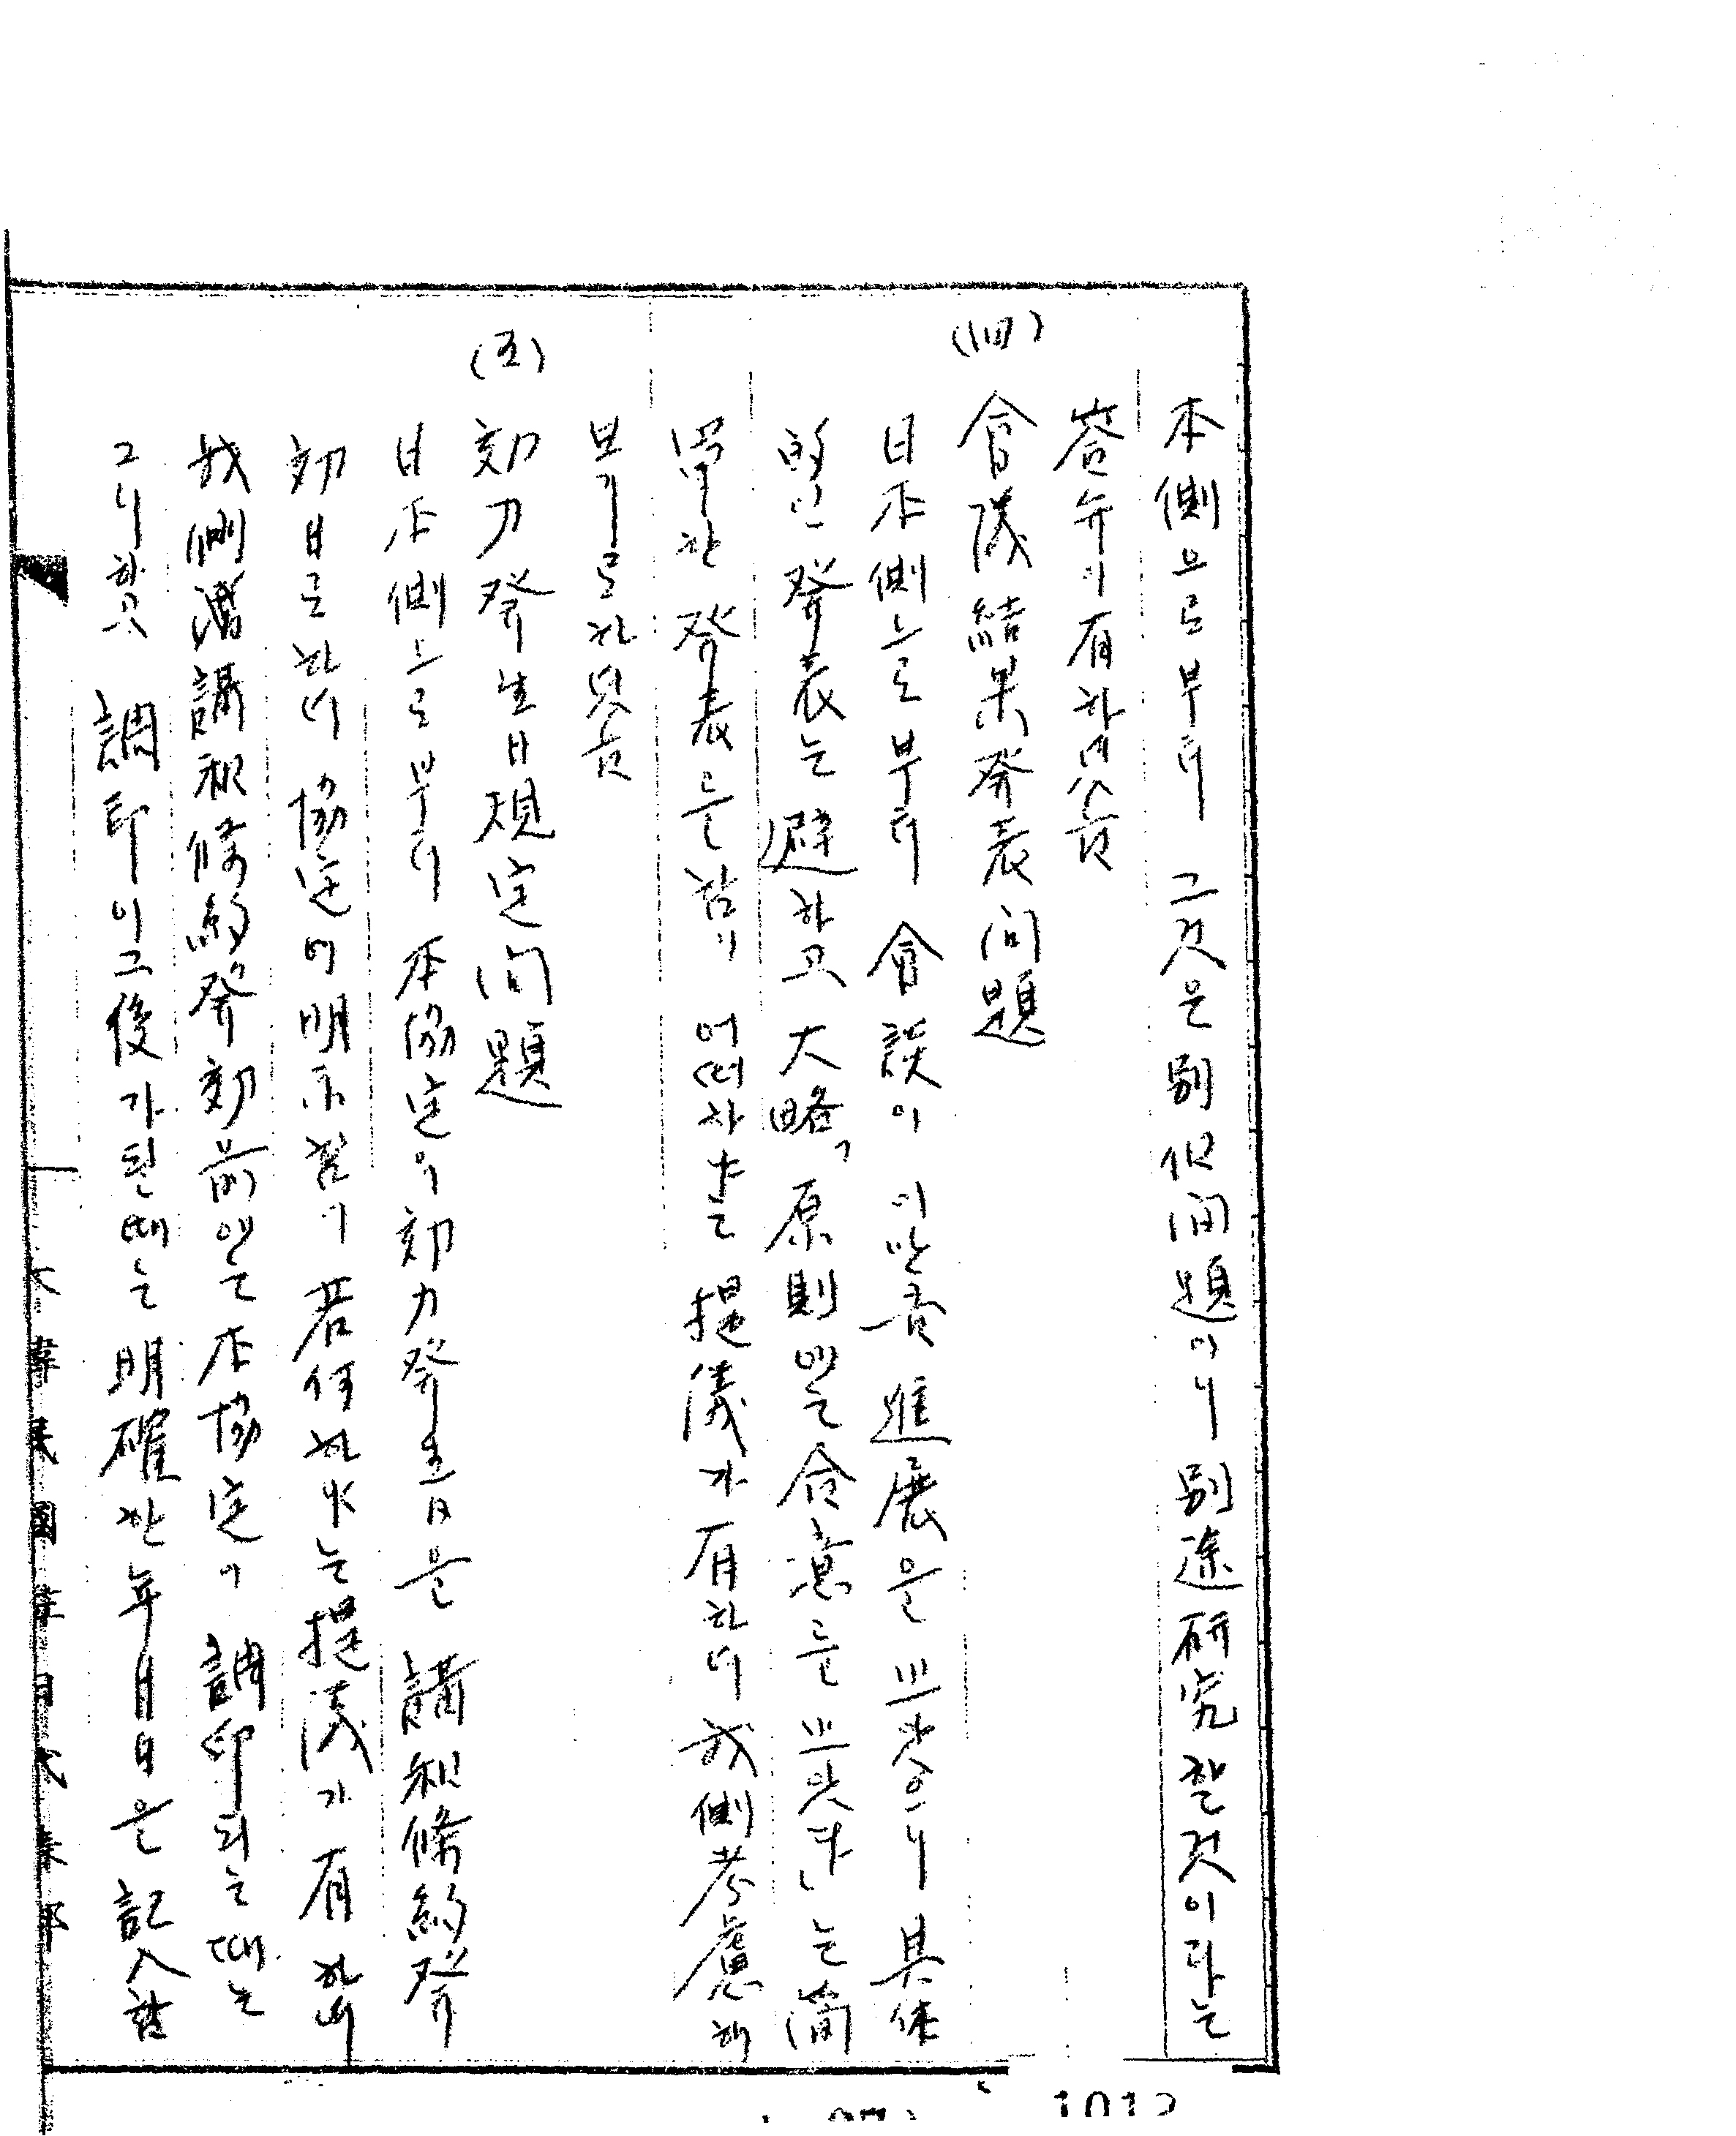 本側으로부터 그것은 別個問題이니 別途硏究할것이라는
答弁이有하였음
(四) 會議結果發表問題
日本側으로부터 會談이 이만큼 進展을 보았으니 具体
的인 發表는 避하고 大略, 原則에는合意를 보았다」는 簡
單한 發表를함이 어떠하냐는 提議가 有하니 我側考慮해
보기로하였음
(五) 効力發生日規定問題
日本側으로부터 本協定의 効力發生日을 講和條約發
効日로하여 協定에明示함이 若何하냐는提議가 有하며
我側은 講和條約發効前에는 本協定이 調印되는때는
그리하고 調印이그後가된때는 明確한年月日을 記入함
大韓民國駐日代表部